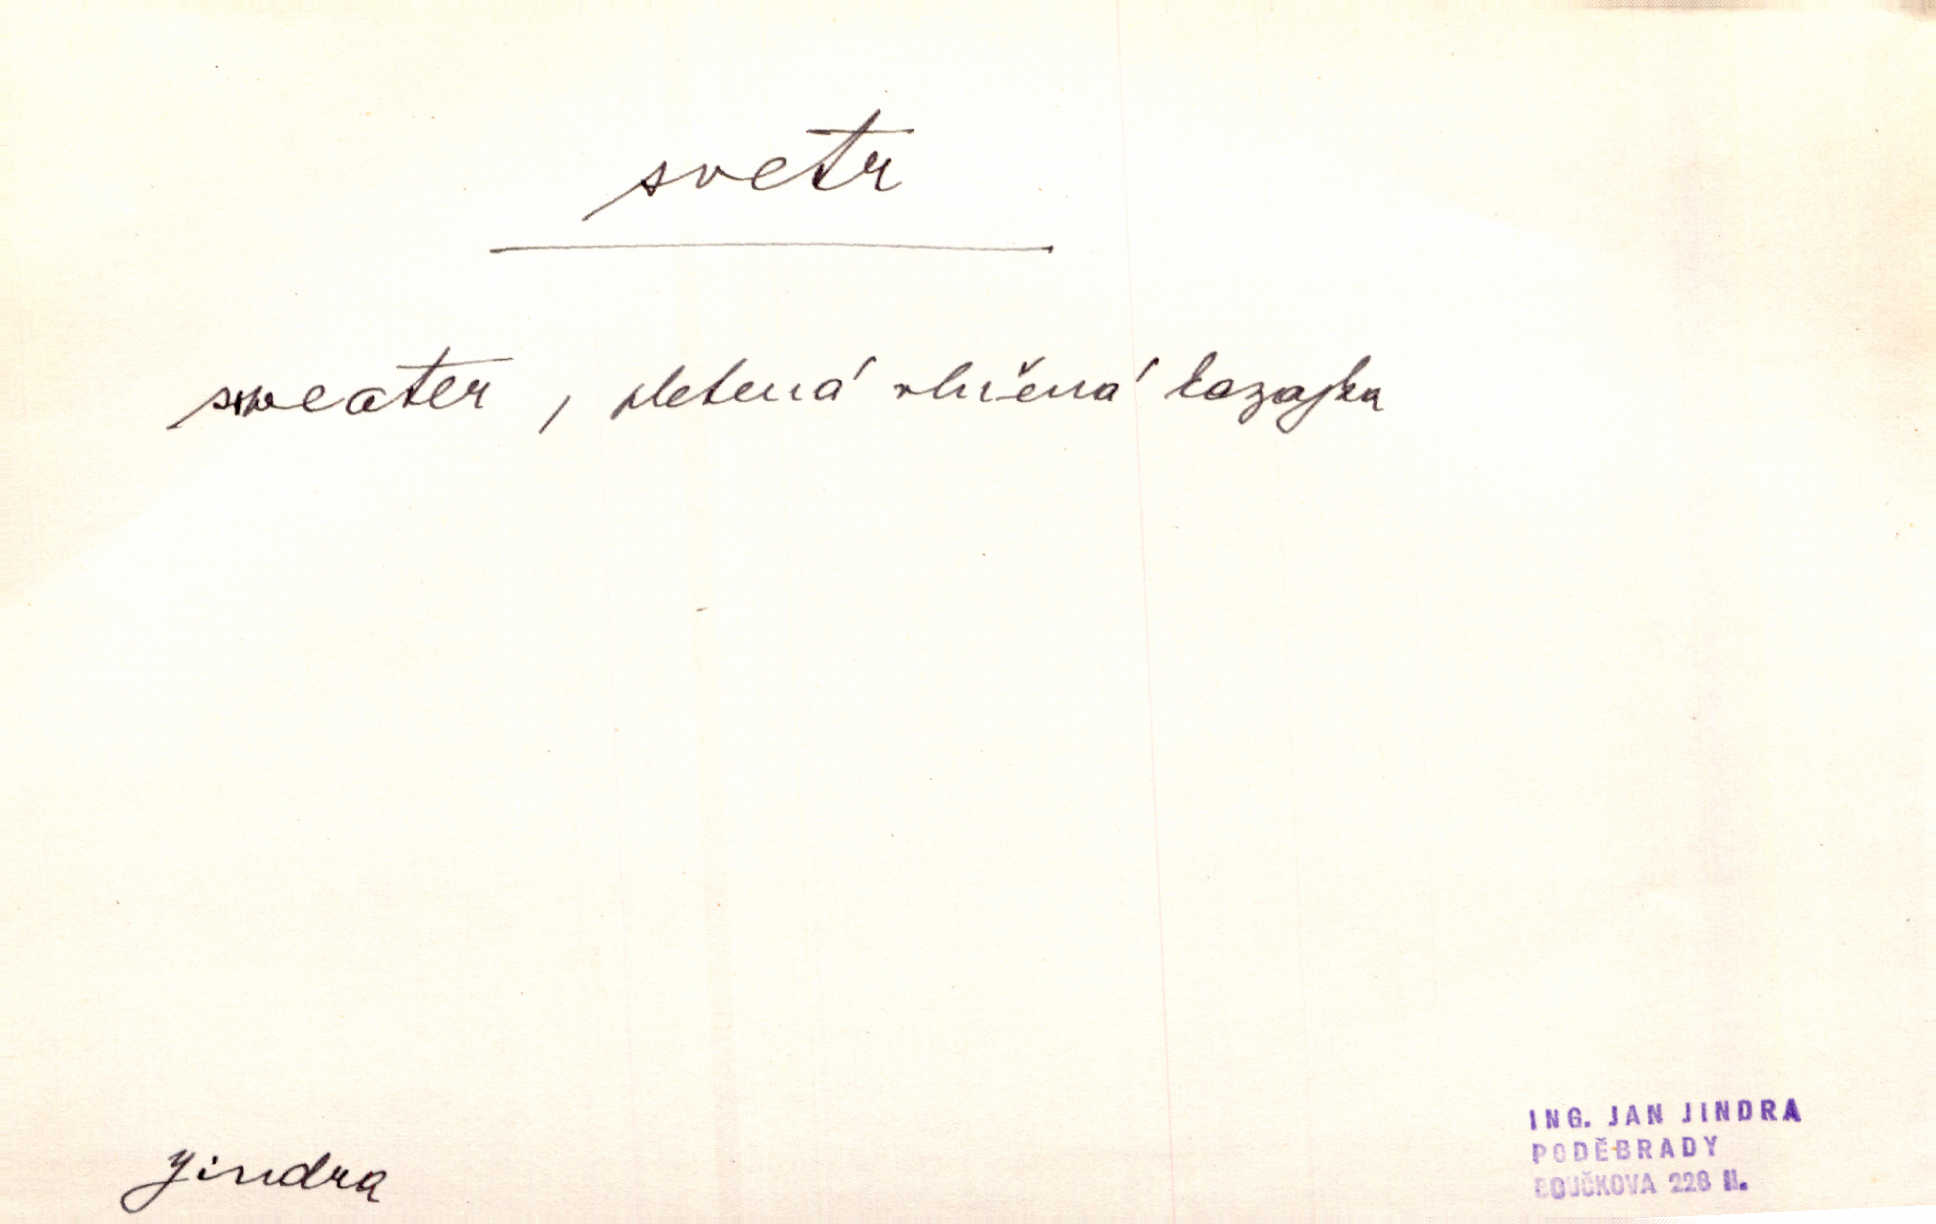 svetr
sweater, pletená vlněná kazajka
Jindra
ING. JAN JINDRA
PODĚBRADY
BOUČKOVA 228 II.